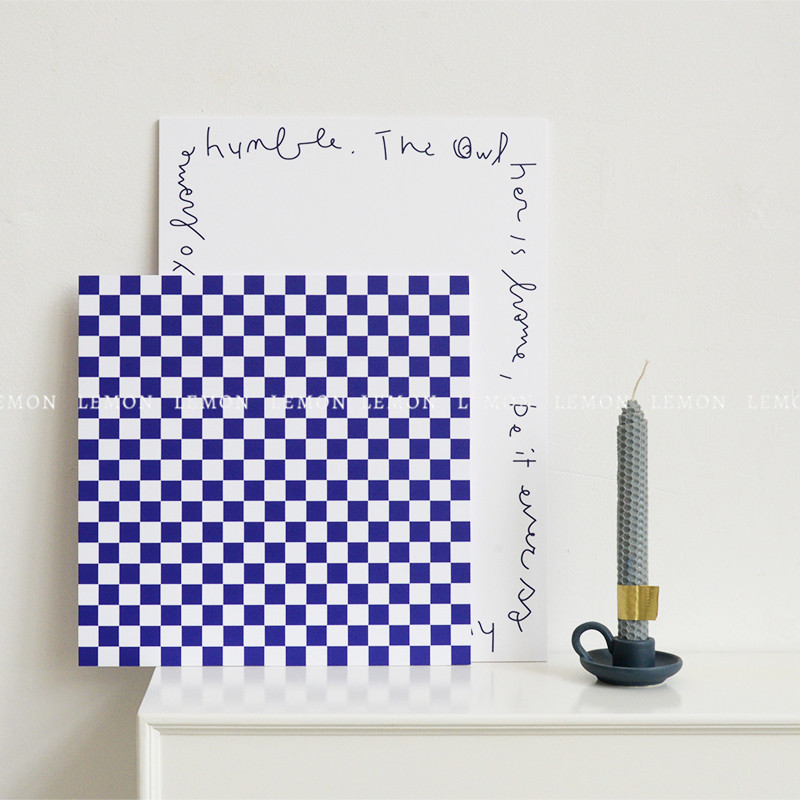 humble. The Owl
her is home, be it ever so
LEMON LEMON LEMON LEMON LEMON LEMON LEMON LEMON